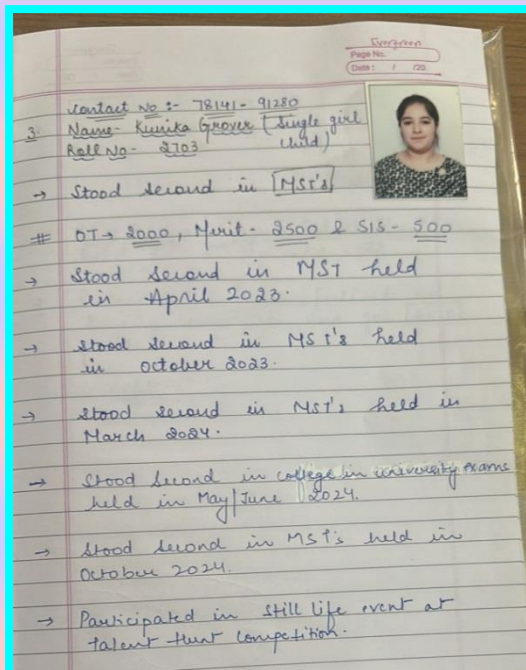 Evergreen
Page No.
Date : / /20
Contact No :- 78141-91280
3. Name- Kunika Grover (Single girl child)
Roll No- 2703
→ Stood second in [MST's]
# OT → 2000, Merit - 2500 & SIS - 500
→ Stood second in MST held
in April 2023.
→ Stood second in MST's held
in October 2023.
→ Stood second in MST's held in
March 2024.
→ Stood second in college in university exams
held in May/June 2024.
→ Stood second in MST's held in
October 2024.
→ Participated in still life event at
talent hunt competition.